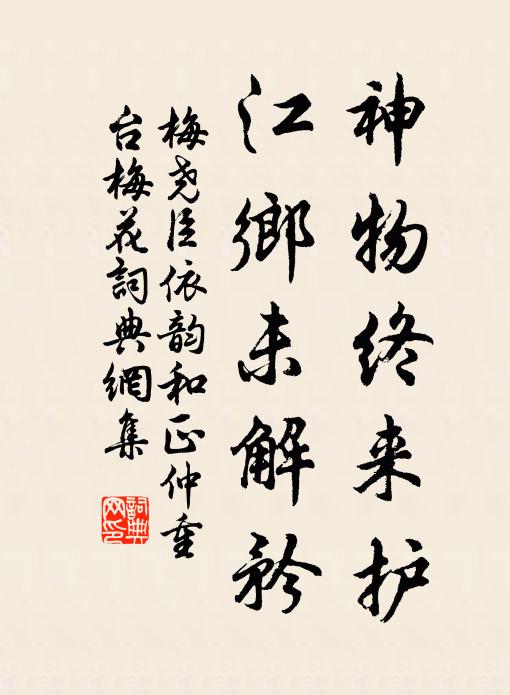 神物终来护
江鄉未解矜
梅尧臣依韵和正仲重
台梅花詞典網集
詞典網印